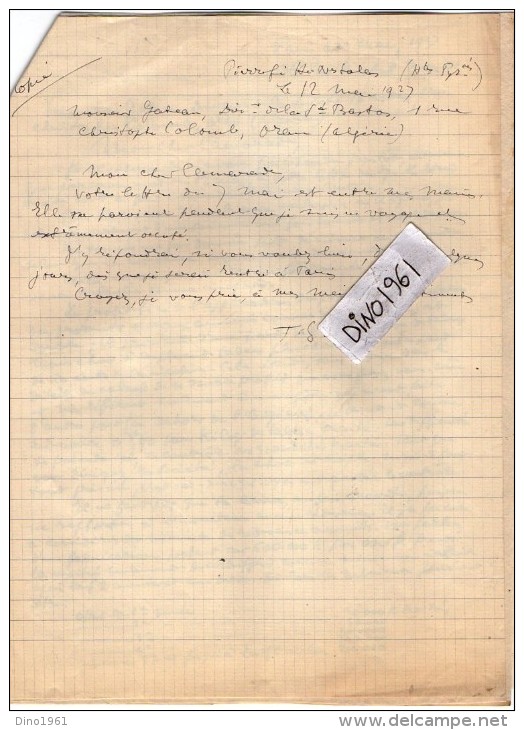 copie
Pierrefitte Nestalas (Htes Pyrées)
Le 12 Mai 1927
Monsieur Gateau, Dir. de la Sté Bastos, 1 rue
Christophe Colomb, Oran (Algérie)
Mon cher Camarade,
Votre lettre du 7 mai est entre mes mains.
Elle me parvient pendant que je suis en voyage et
extrêmement occupé.
J'y répondrai, si vous voulez bien, quelques
jours, dès que je serai rentré à Paris
Croyez, je vous prie, à mes
DINO1961
Dino1961
www.delcampe.net